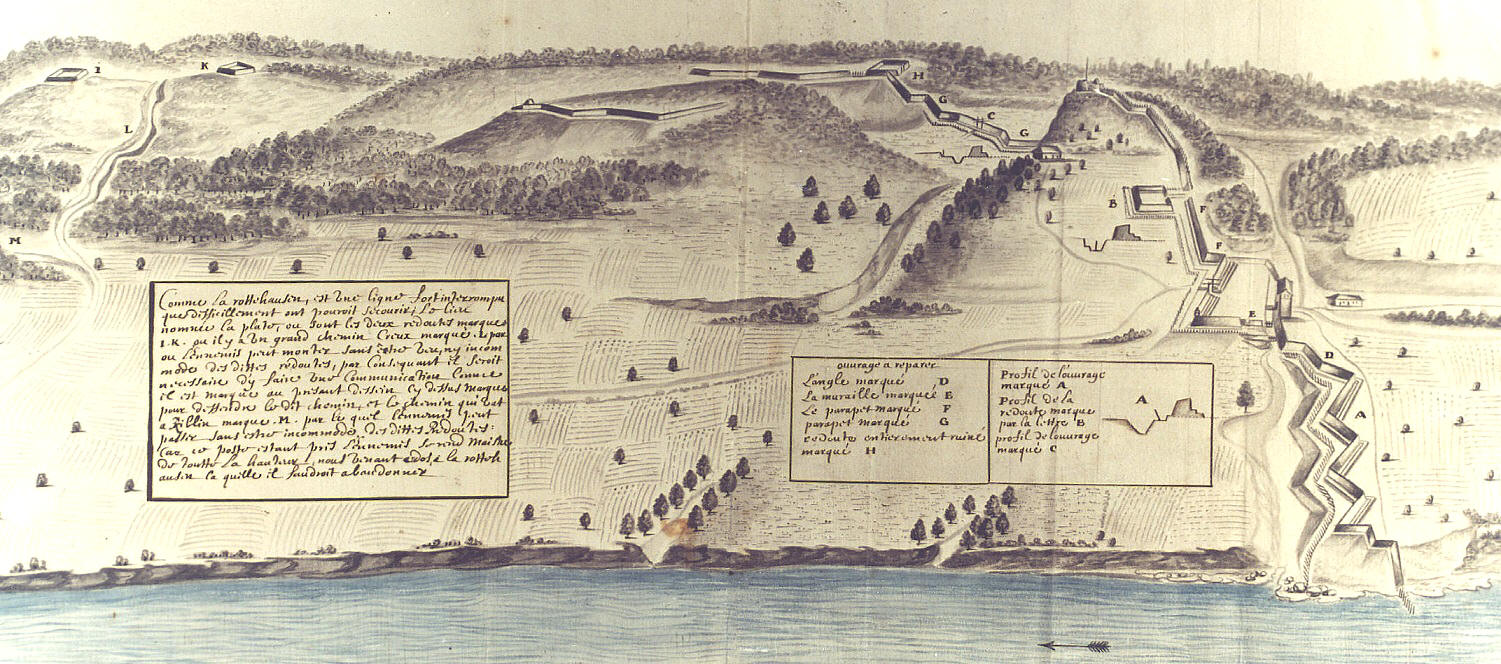 I
K
L
M
H
G
C
G
B
F
F
E
D
A
Comme La rottehausen, est Une ligne fort interrompu
que difficillement ont pouroit secourir; Le lieu
nommée la platte, ou sont les deux redoutes marquee
I. K. ou il y a Un grand chemin Creux marqué. L. par
ou Lennemis peut monter sans estre veu, ny incom
modé des dittes redoutes, par Consequant il seroit
necessaire dy faire une Communication Comme
il est marqué au présant dessein cy dessus marqué
pour deffendre le dit chemin, et le chemin qui vat
a fillin marqué. M. par le quel Lennemis peut
passer sans estre incommodé des dittes Redoutes:
Car ce poste estant pris Lennemis se rend Maistre
de toutte La hauteur, nous venant a dos a la rotteh
ausen la quelle il faudroit abandonner
ouvrage a reparer
L'angle marqué D
La muraille marquéé E
Le parapet marqué F
parapet marqué G
redoute entierement ruiné
marqué H
Profil de louvrage
marqué A
Profil de la
redoute marqué
par la lettre B
profil de louvrage
marqué C
A